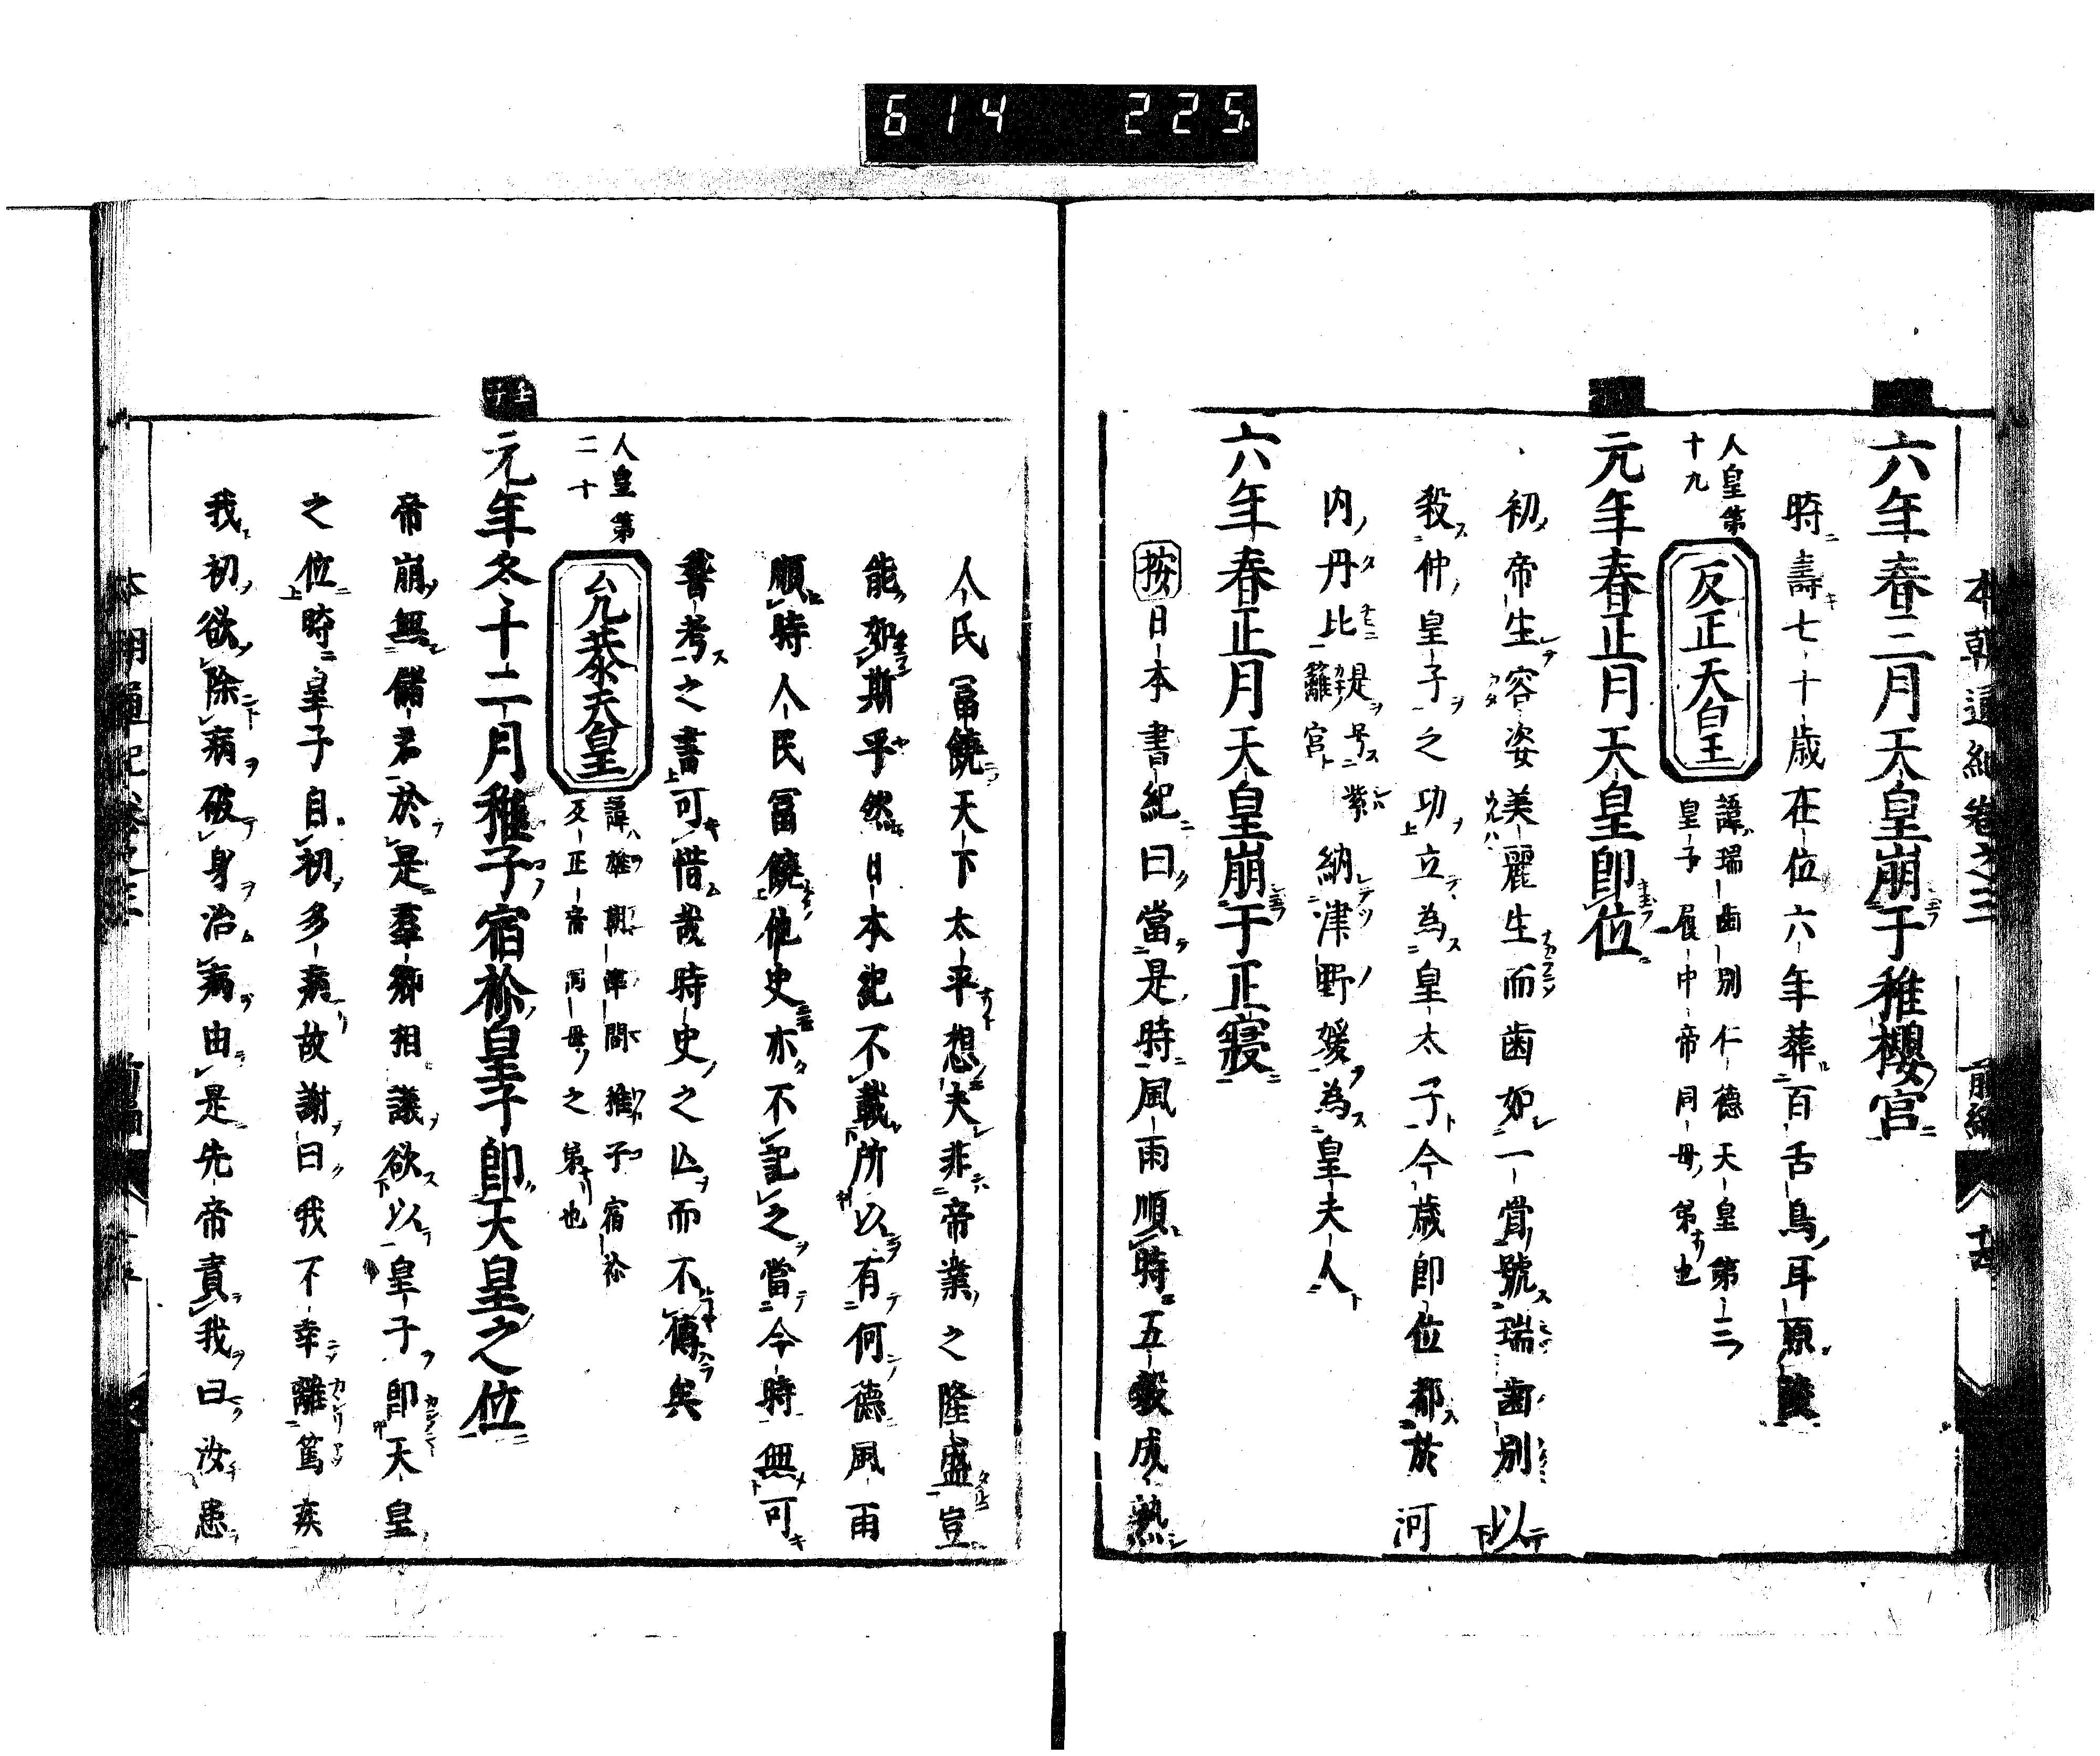 614 225
本朝通紀卷之三 前編
六年春三月天皇崩于稚櫻宮
時壽七十歳在位六年葬百舌鳥耳原陵
人皇第
十九
反正天皇
諱瑞歯別仁德天皇第三
皇子履中帝同母弟也
元年春正月天皇即位
初帝生容姿美麗生而歯如一骨號瑞歯別以
殺仲皇子之功立為皇太子今歳即位都於河
内丹比
是号紫
籬宮
納津野媛為皇夫人
六年春正月天皇崩于正寢
按日本書紀曰當是時風雨順時五穀成熟
人民冨饒天下太平想夫非帝業之隆盛豈
能如斯乎然日本紀不載所以有何德風雨
順時人民冨饒他史亦不記之當今時無可
書考之書可惜哉時史之亾而不傳矣
人皇第
二十
允恭天皇
諱雄朝津間稚子宿祢
反正帝同母之弟也
壬子
元年冬十二月稚子宿祢皇子即天皇之位
帝崩無儲君於是羣卿相議欲以皇子即天皇
之位時皇子自初多病故謝曰我不幸離篤疾
我初欲除病破身治病由是先帝責我曰汝患